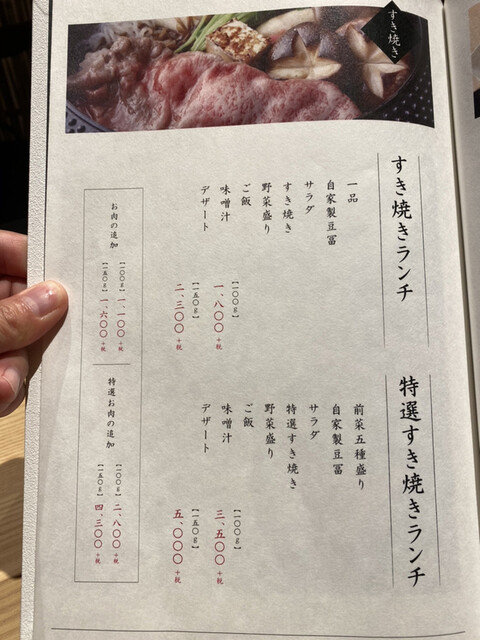 すき焼き
すき焼きランチ
一品
自家製豆冨
サラダ
すき焼き
野菜盛り
ご飯
味噌汁
デザート
【一〇〇g】
一、八〇〇+税
【一五〇g】
二、三〇〇+税
お肉の追加
【一〇〇g】一、一〇〇+税
【一五〇g】一、六〇〇+税
特選すき焼きランチ
前菜五種盛り
自家製豆冨
サラダ
特選すき焼き
野菜盛り
ご飯
味噌汁
デザート
【一〇〇g】
三、五〇〇+税
【一五〇g】
五、〇〇〇+税
特選お肉の追加
【一〇〇g】二、八〇〇+税
【一五〇g】四、三〇〇+税